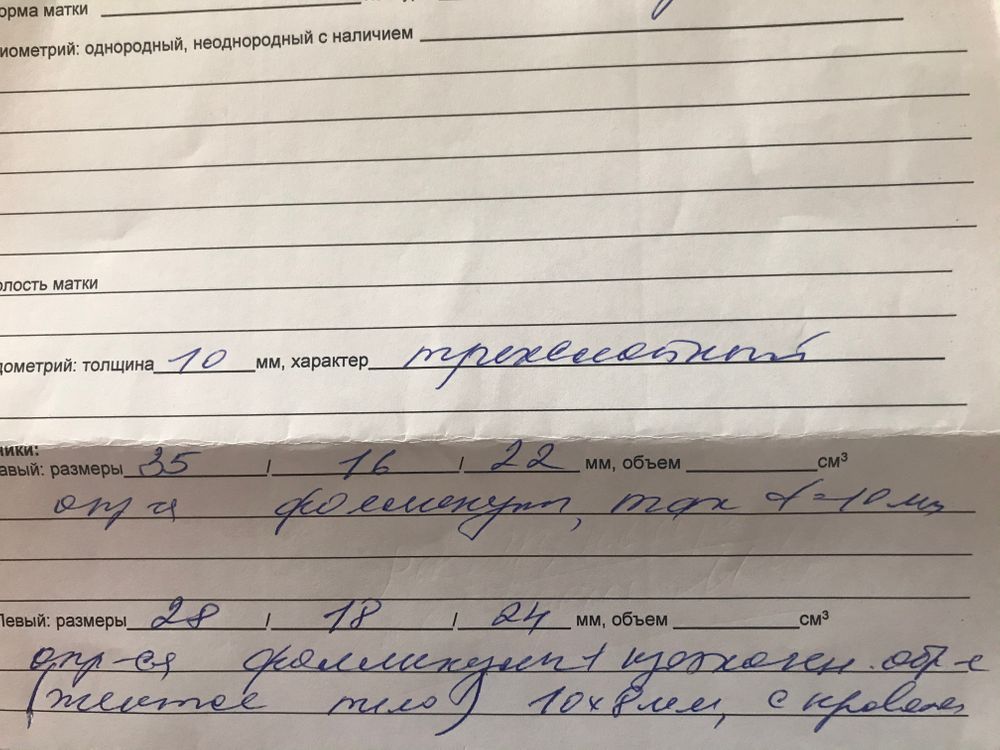 орма матки
иометрий: однородный, неоднородный с наличием
олость матки
дометрий: толщина 10 мм, характер трехслойный
ники:
авый: размеры 35 / 16 / 22 мм, объем см³
опр-я фолликулы, max d=10мм
Левый: размеры 28 / 18 / 24 мм, объем см³
опр-ся фолликулы + изоэхоген. обр-е
(желтое тело) 10х8мм, с кровоток